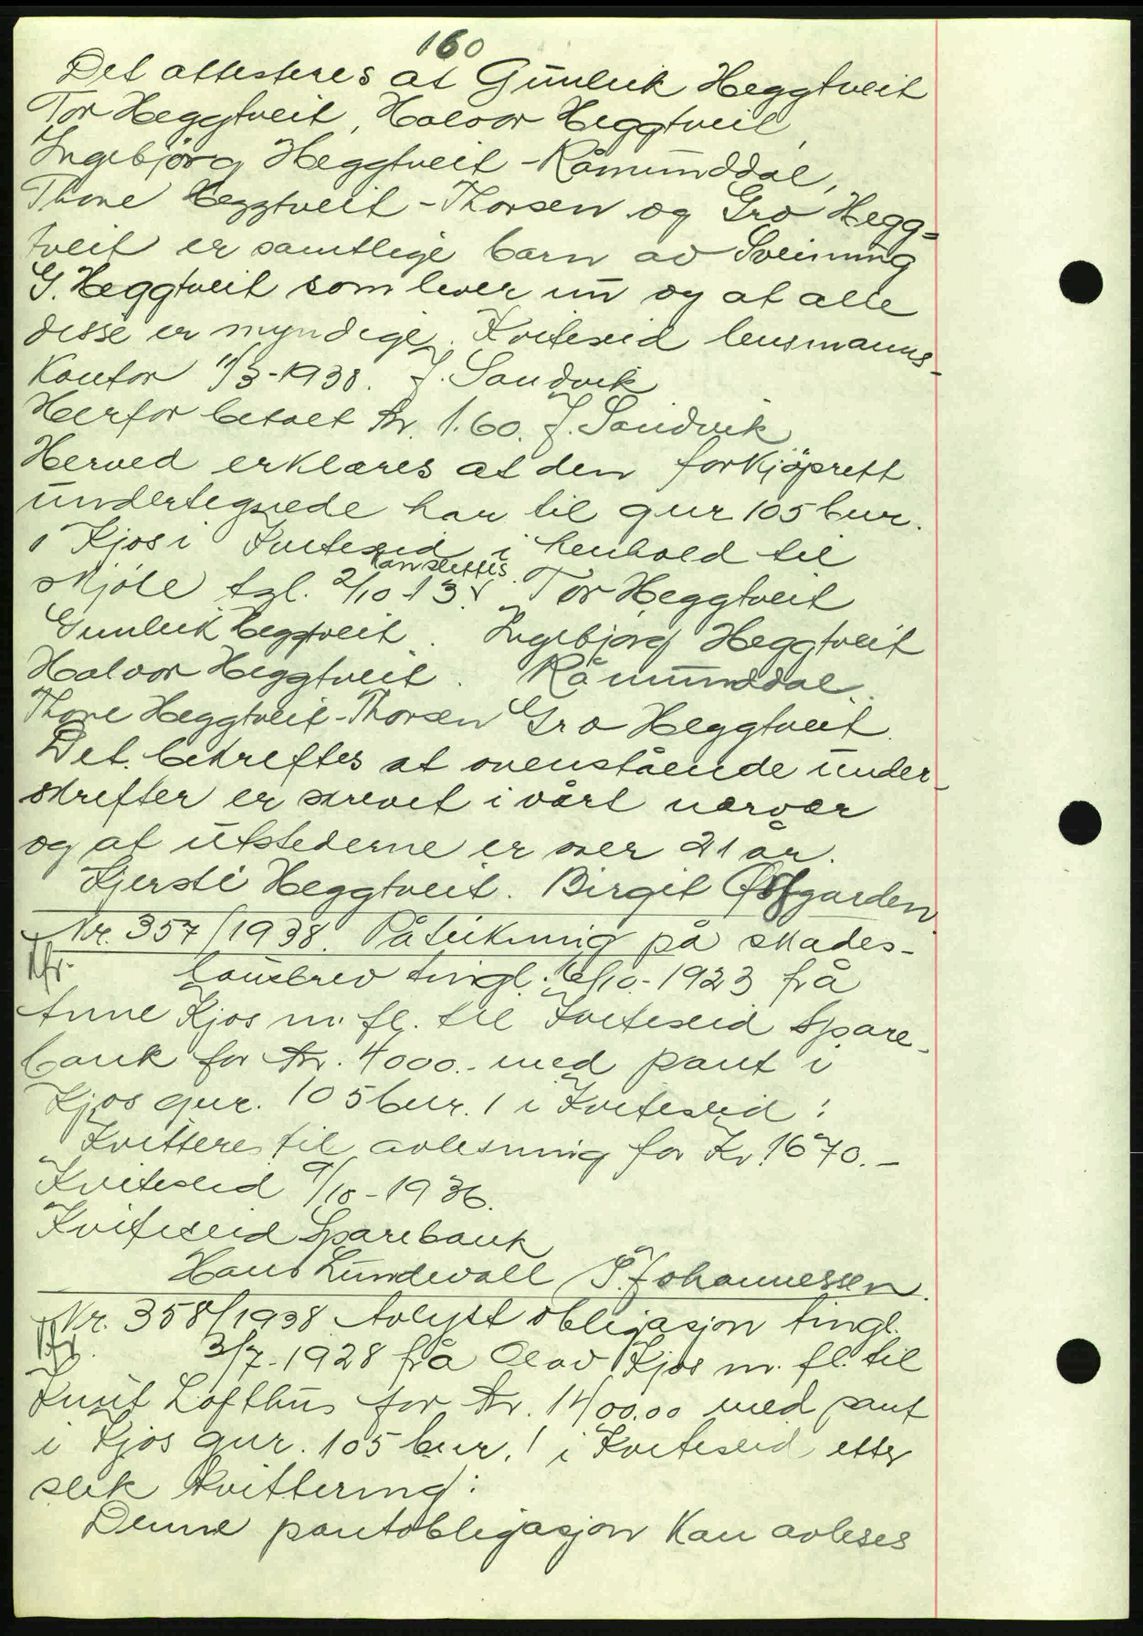 160
Det attesteres at Gunleik Heggtveit
Tor Heggtveit, Halvor Heggtveit,
Ingebjørg Heggtveit - Råmunddal,
Thone Heggtveit - Thorsen og Gro Hegg=
tveit er samtlige barn av Sveinung
G. Heggtveit som lever nu og at alle
disse er myndige. Kviteseid lensmanns-
kontor 11/3-1938. J. Sandvik
Herfor betalt kr. 1.60. J. Sandvik
Herved erklæres at den forkjøprett
undertegnede har til gnr 105 bnr.
1 Kjos i Kviteseid i henhold til
skjøte tgl. 2/10-13 kanselleres. Tor Heggtveit
Gunleik Heggtveit. Ingebjørg Heggtveit
Halvor Heggtveit. Råmunddal.
Thone Heggtveit-Thorsen Gro Heggtveit.
Det bekreftes at ovenstående under-
skrifter er skrevet i vårt nærvær
og at utstederne er over 21 år.
Kjersti Heggtveit. Birgit Østgarden.
Nr. 357/1938. Påteikning på skades-
Afr. lausbrev tingl. 16/10-1923 frå
Anne Kjos m. fl. til Kviteseid Spare-
bank for kr. 4000.- med pant i
Kjos gnr. 105 bnr. 1 i Kviteseid:
Kvitteres til avlesning for Kr. 1670.-
Kviteseid 9/10-1936.
Kviteseid Sparebank
Hans Lundevall S. Johannessen.
Nr. 358/1938 Avlyst obligasjon tingl.
Afr. 3/7-1928 frå Olav Kjos m. fl. til
Knut Lofthus for kr. 1400.00 med pant
i Kjos gnr. 105 bnr. 1 i Kviteseid etter
slik kvittering:
Denne pantobligasjon kan avleses